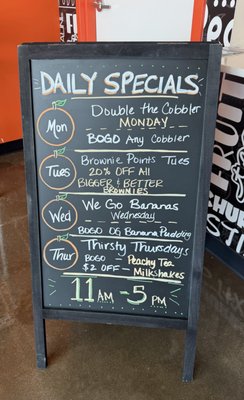 DAILY SPECIALS
Mon
Double the Cobbler
MONDAY
BOGO Any Cobbler
Tues
Brownie Points Tues
20% OFF All
BIGGER & BETTER
BROWNIES
Wed
We Go Bananas
Wednesday
BOGO OG Banana Pudding
Thur
Thirsty Thursdays
BOGO – Peachy Tea
$2 OFF – Milkshakes
11 AM - 5 PM